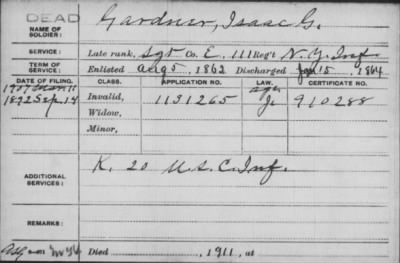 DEAD
NAME OF SOLDIER: Gardner, Isaac G.
SERVICE: Late rank, Sgt Co. E, 111 Reg't N.Y. Inf.
TERM OF SERVICE: Enlisted Aug 5, 1862 Discharged Jan 15, 1864
DATE OF FILING. CLASS. APPLICATION NO. LAW. CERTIFICATE NO.
1892 Sep. 14 Invalid, 1131265 910288
Widow,
Minor,
ADDITIONAL SERVICES: K. 20 U.S.C. Inf.
REMARKS:
Died , 1911, at